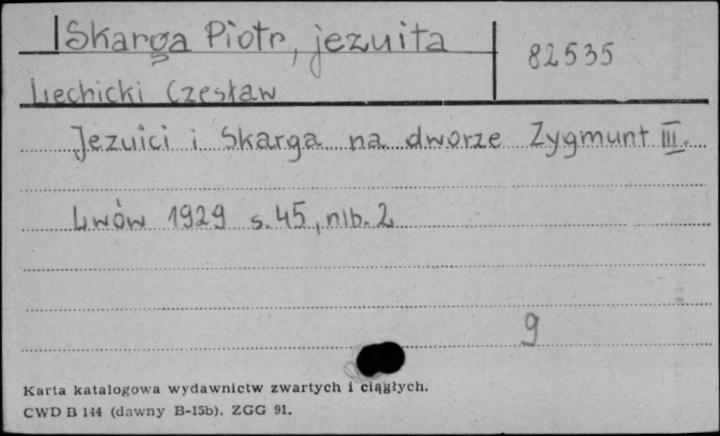 Skarga Piotr, jezuita
82535
Lechicki Czesław
Jezuici i Skarga na dworze Zygmunt III.
Lwów 1929 s. 45, nlb. 2
9
Karta katalogowa wydawnictw zwartych i ciągłych.
CWD B 144 (dawny B-15b). ZGG 91.